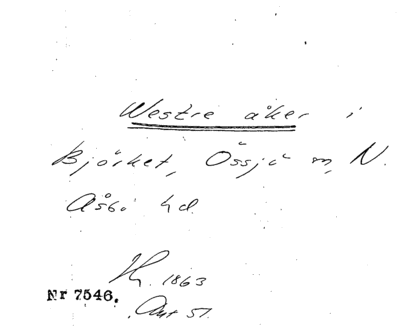 Westre åker i
Björket, Össjö m, N.
Åsbo hd.
1863
Nr 7546.
Akt 51.